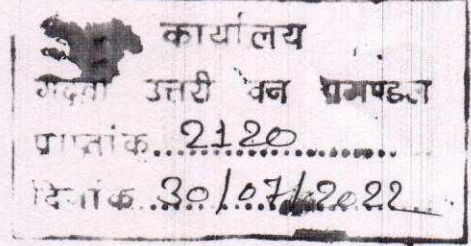 कार्यालय
गढवा उत्तरी वन प्रमण्डल
प्राप्तांक 2120
दिनांक 30/07/2022